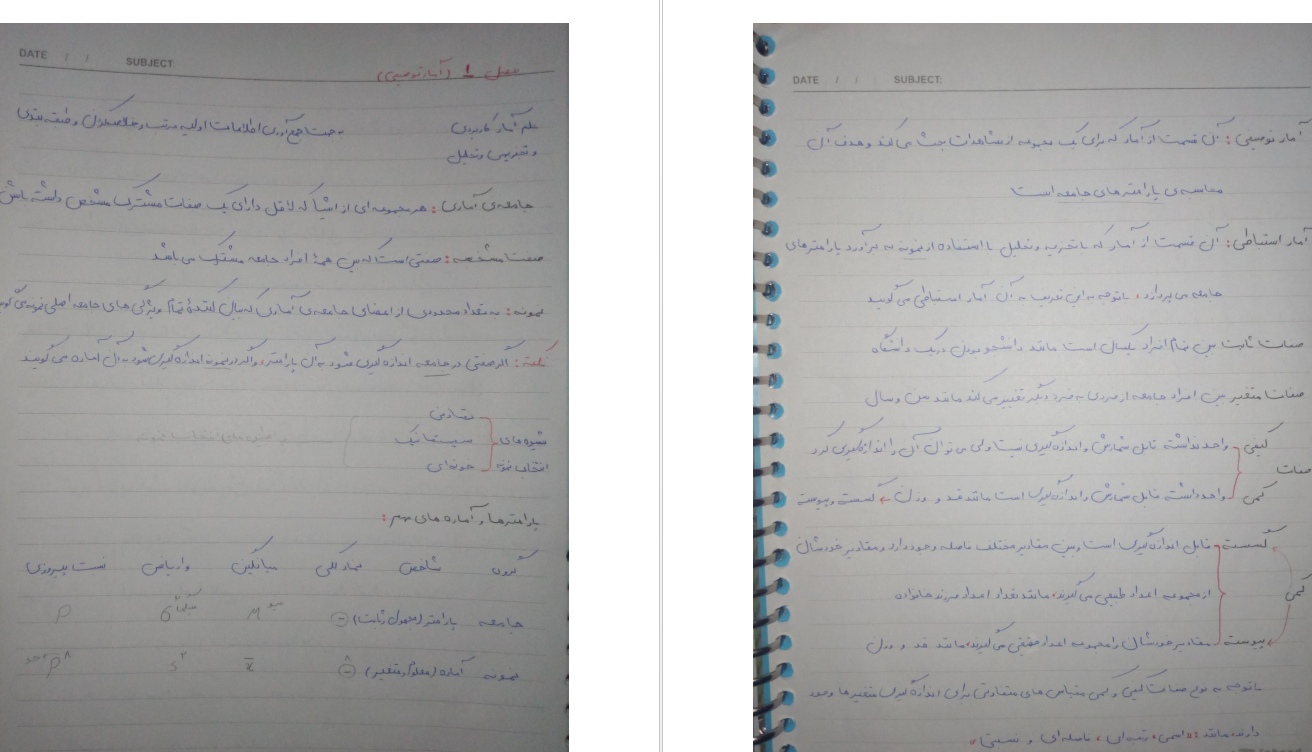 DATE / / SUBJECT:
فصل 1 (آمار توصیفی)
علم آمار کاربردی صفت جمع آوری اطلاعات اولیه مرتب و خلاصه کردن و طبقه بندی
و تجزیه و تحلیل
جامعه ی آماری : هر مجموعه ای از اشیا که لااقل دارای یک صفات مشترک مشخص داشته باش
صفت مشخصه : صفتی است که بین همهٔ افراد جامعه مشترک می باشد
نمونه : به تعداد محدودی از اعضای جامعه ی آماری که بیان کنندهٔ تمام ویژگی های جامعه اصلی نمونه می گوی
نکته : اگر صفتی در جامعه اندازه گیری شود به آن پارامتر و اگر در نمونه اندازه گیری شود به آن آماره می گویند
تصادفی
شیوه های سیستماتیک
انتخاب نمونه خوشه ای
پارامترها و آماره های مهم :
گروه شاخص نماد کلی میانگین واریانس نسبت پیروزی
جامعه پارامتر (مجهول و ثابت) Θ μ مو σ² سیگما P
نمونه آماره (معلوم و متغیر) Θ^ x̄ s² P^
DATE / / SUBJECT:
آمار توصیفی : آن قسمت از آمار که برای یک مجموعه از مشاهدات بحث می کند و هدف آن
محاسبه ی پارامترهای جامعه است
آمار استنباطی : آن قسمت از آمار که با تجزیه و تحلیل با استفاده از نمونه به برآورد پارامترهای
جامعه می پردازد ، با توجه به این تعریف به آن آمار استنباطی می گویند
صفات ثابت بین تمام افراد یکسان است مانند دانشجو بودن در یک دانشگاه
صفات متغیر بین افراد جامعه از فردی به فرد دیگر تغییر می کند مانند سن و سال
کیفی واحد نداشته قابل شمارش و اندازه گیری نیست ولی می توان آن را اندازه گیری کرد
صفات
کمی واحد داشته قابل شمارش و اندازه گیری است مانند قد و وزن ← گسسته و پیوسته
گسسته قابل اندازه گیری است و بین مقادیر مختلف فاصله وجود دارد و مقادیر خودشان
کمی از مجموعه اعداد طبیعی می گیرند ، مانند تعداد اعداد فرزند خانواده
پیوسته مقادیر خودشان را مجموعه اعداد حقیقی می گیرند ، مانند قد و وزن
با توجه به نوع صفات کیفی و کمی مقیاس های متفاوتی برای اندازه گیری متغیرها وجود
دارند مانند : « اسمی ، رتبه ای ، فاصله ای و نسبتی »